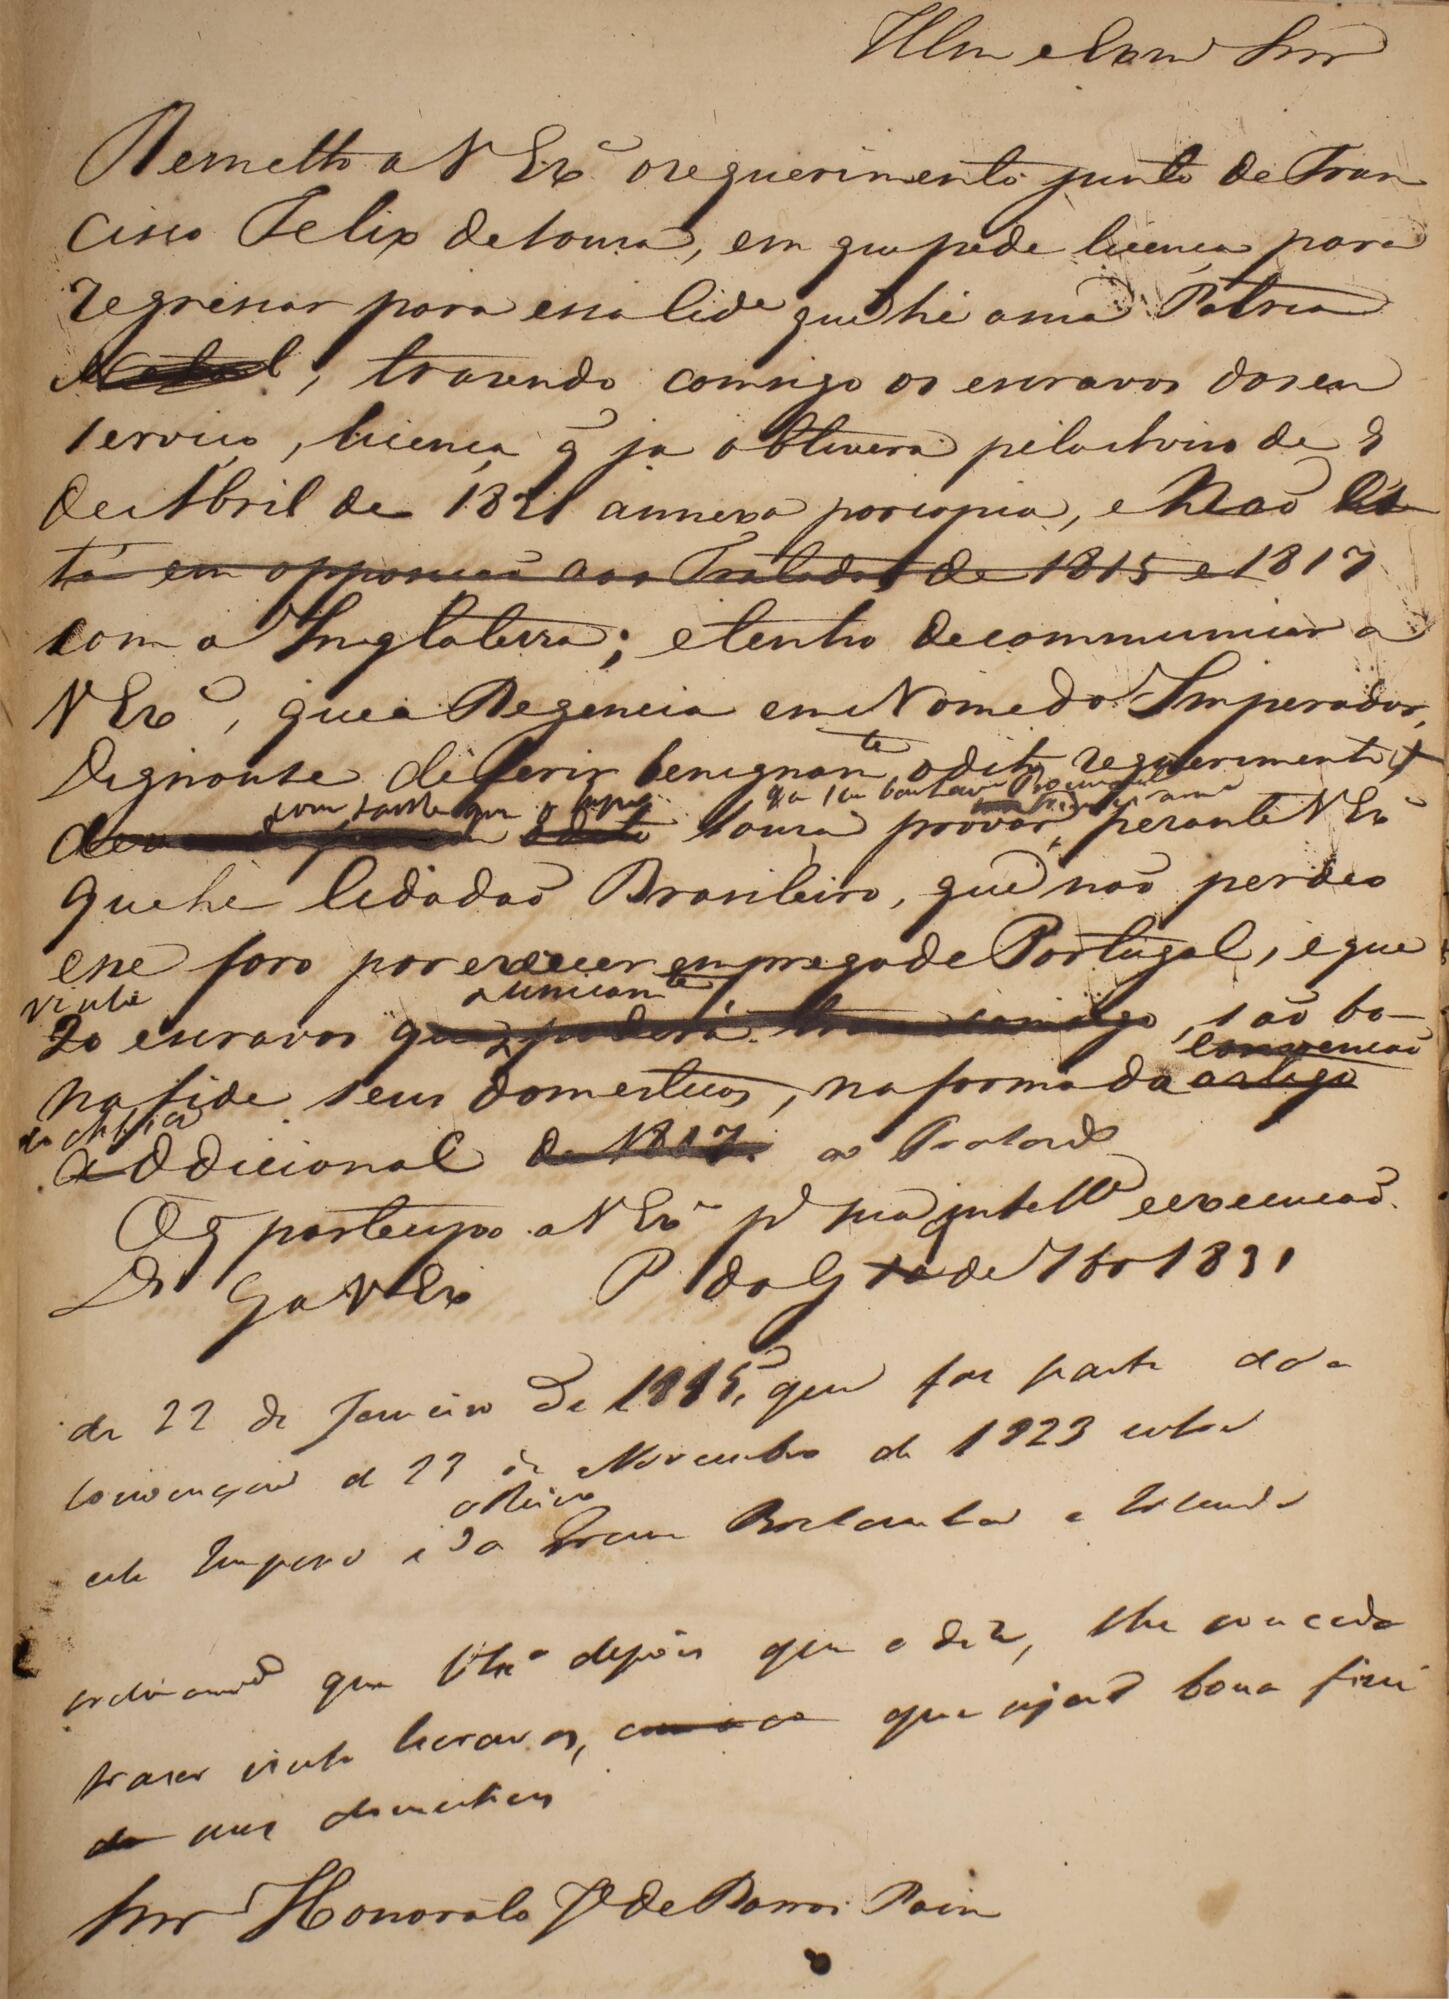 Illmo e Exmo Snr
Remetto a V Exª o requerimento junto de Fran
cisco Felix de Souza, em que pede licença para
regressar para essa Cidᵉ que hé a sua Patria
Natal, trazendo comsigo os escravos do seu
serviço, licença q̃ ja obtivera pelo Aviso de
de Abril de 1821 annexa por copia, e Não Es
tá em opposição aos Tratados de 1815 e 1817
com a Inglaterra; e tenho de communicar a
V Exª, que a Regencia em Nome do Imperador,
Dignouse deferir benignamᵗᵉ o dito requerimento
com tanto que o supᵉ
Souza provar perante V Exª
que hé Cidadaõ Brasileiro, que naõ perdeo
esse foro por exercer emprego de Portugal, e que
vinte
unicamᵗᵉ
20 escravos que poderá trazer comsigo, saõ bo-
Convençaõ
na fide seus domesticos, na forma da artigo
addicional de 1817. ao Tratado
O q̃ participo a V Exª pª sua intellª e execucaõ.
Ds Gᵉ a V Exª P. do G de 7bro 1831
de 22 de Janeiro de 1815, que faz parte da
Convençaõ de 23 de Novembro de 1823 entre
o Reino
este Imperio e da Gram Bretanha e Irlanda
ordenando que V Exª depois que o dê, lhe conceda
trazer vinte Escravos, que sejaõ bona fide
seus domesticos
Snr Honorato Jᵉ de Barros Paim